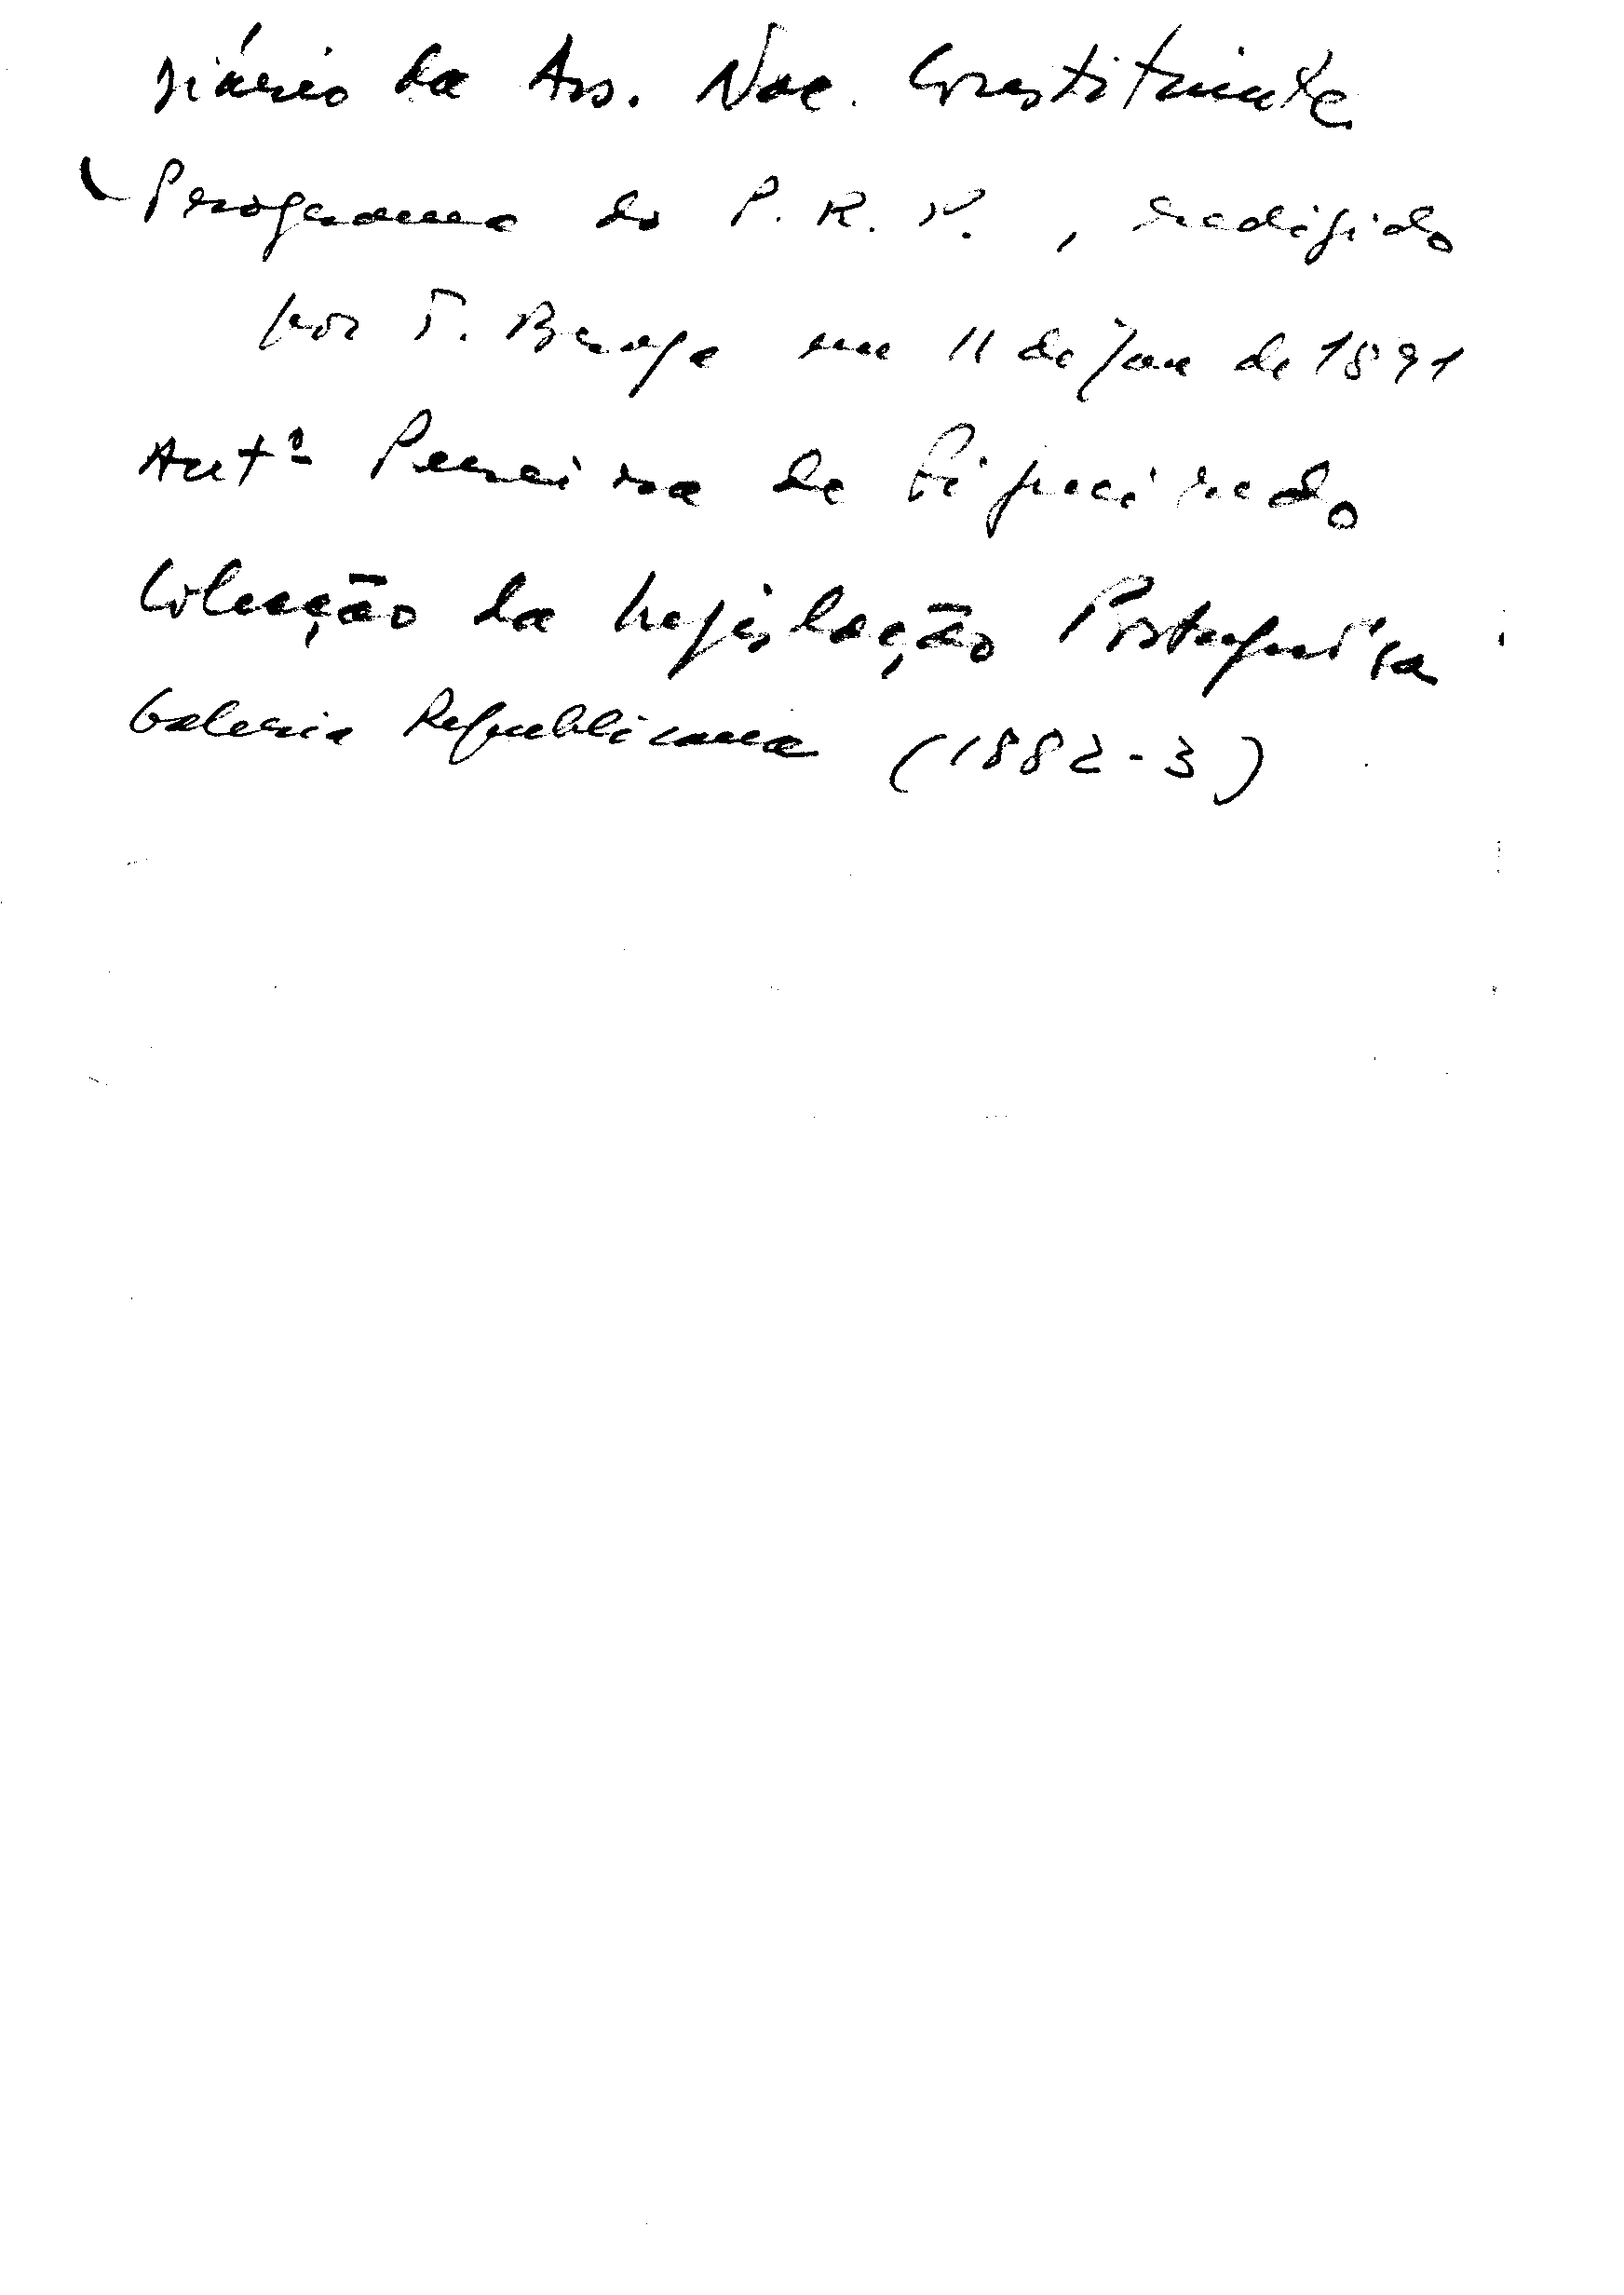 Diário da Ass. Nac. Constituinte
Programa do P. R. P., redigido
por T. Braga em 11 de Jan de 1891
Antº Pereira de Figueiredo
Colecção da Legislação Portuguêsa
Galeria Republicana (1882-3)